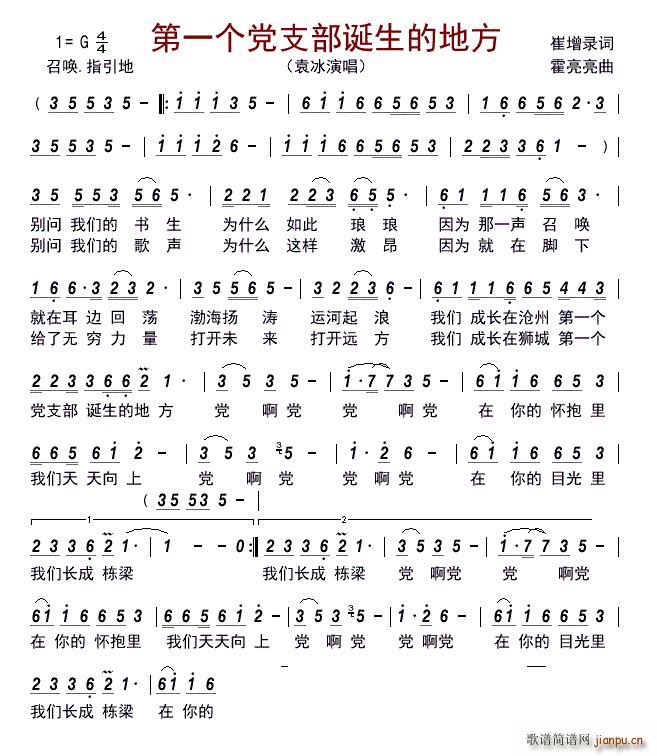 第一个党支部诞生的地方
1= G 4/4
召唤.指引地
（袁冰演唱）
崔增录词
霍亮亮曲
( 3 5 5 3 5 - |: 1 1 1 3 5 - | 6 1 1 6 6 5 6 5 | 1 6 6 5 6 2·3 |
3 5 5 3 5 - | 1 1 1 2 6 - | 1 1 1 6 6 5 6 5 3 | 2 2 2 3 6 1 - ) |
3 5 5 5 3 5 6 5· | 2 2 1 2 2 3 6 5 5· | 6 1 1 1 6 5 6 5 3 |
别问 我们的 书 生 为什么 如此 琅 琅 因为 那一声 召 唤
别问 我们的 歌 声 为什么 这样 激 昂 因为 就 在 脚 下
1 6 6·3 2 3 2 | 3 3 5 6 5 - | 3 2 2 3 5 - | 6 1 1 6 1 6 5 4 4 3 |
就在耳 边 回 荡 渤海扬 涛 运河起 浪 我们 成长在沧州 第一个
给了无 穷力 量 打开未 来 打开远 方 我们 成长在狮城 第一个
2 2 3 3 3 6 6 2 1· | 3 5 3 5 - | 1·7 7 3 5 - | 6 1 6 1 6 6 5 3 |
党支部 诞生的地 方 党 啊党 党 啊党 在 你的 怀抱 里
6 6 5 6 1 2 - | 3 5 3 3 5 - | 1·2 6 1 - | 6 1 6 5 6 6 5 3 |
我们天 天向 上 党 啊党 党 啊党 在 你的 目光 里
( 3 5 5 3 5 - |
1 2
2 3 3 6 2 1· | 1 - - 0 :| 2 3 3 6 2 1· | 3 5 3 5 - | 1·7 7 3 5 - |
我们长成 栋梁 我们长成 栋梁 党 啊党 党 啊党
6 1 6 1 6 6 5 3 | 6 6 5 6 1 2 - | 3 5 3 3 5 - | 1·2 6 1 - | 6 1 6 5 6 6 5 3 |
在 你的 怀抱里 我们天天向 上 党 啊党 党 啊党 在 你的 目光里
2 3 3 6 2 1· | 6 1 1 6
我们长成栋梁 在 你的
歌谱简谱网
jianpu.cn